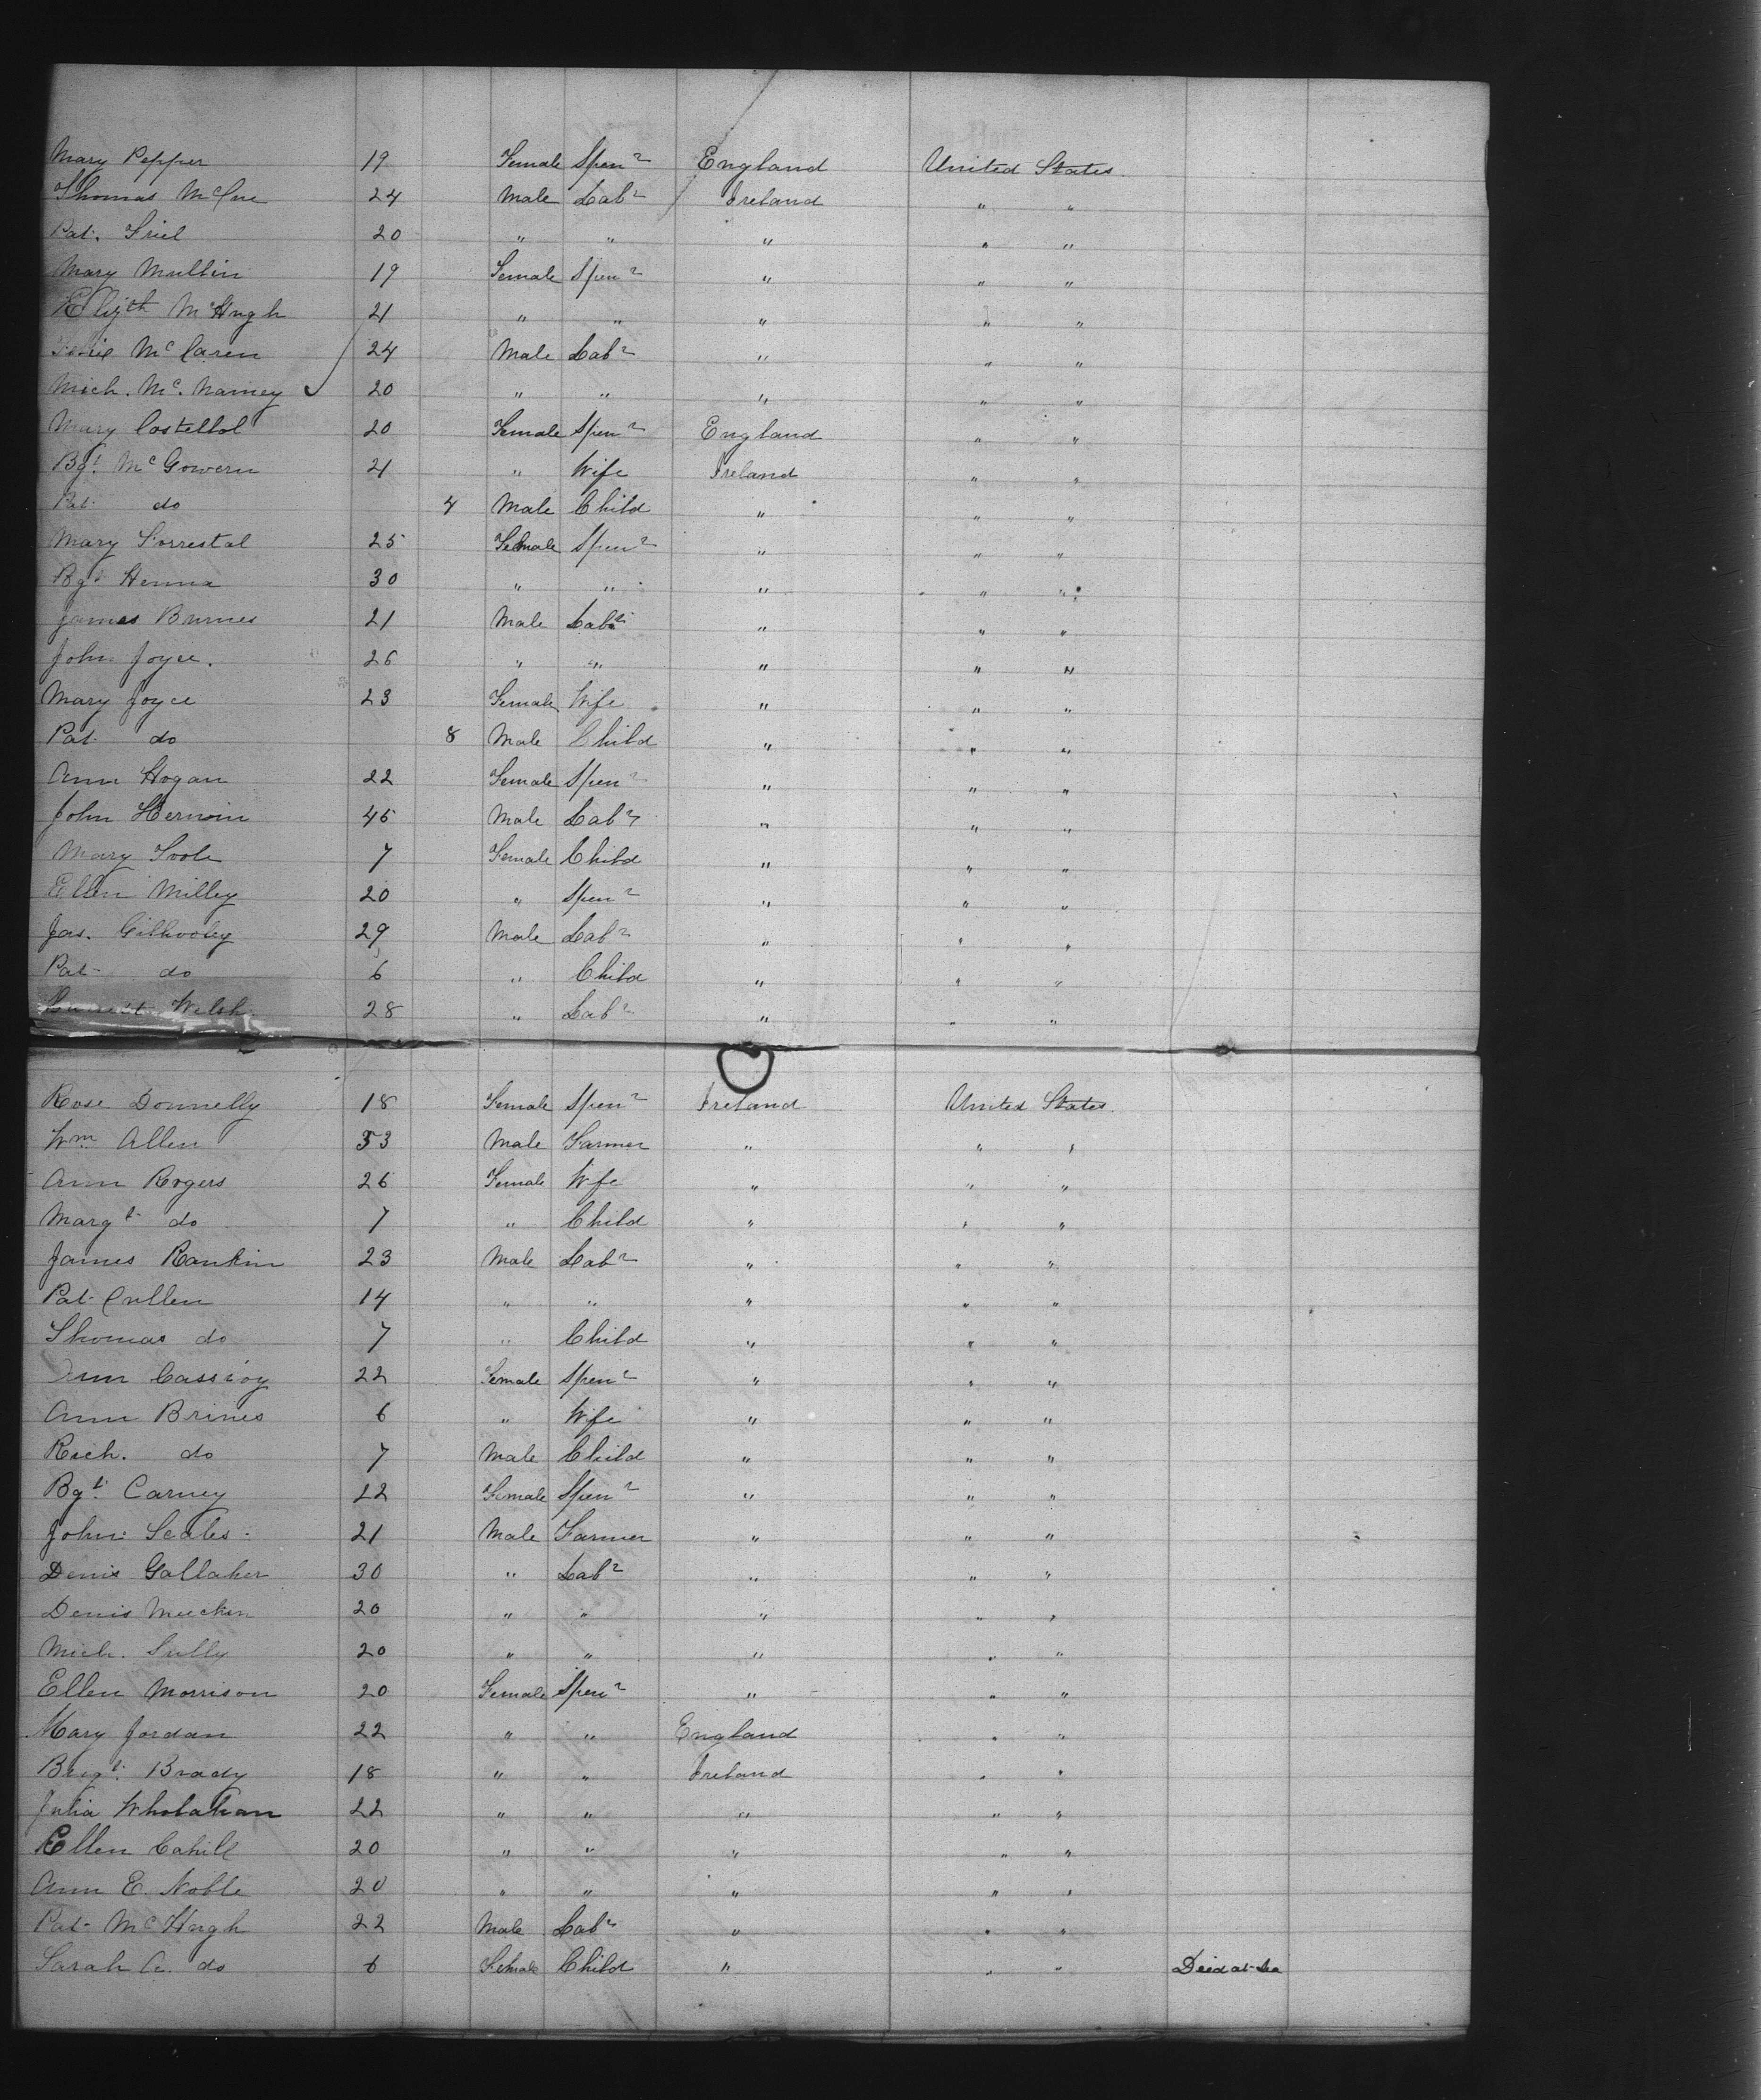 Mary Pepper 19 Female Spenr England United States
Thomas McCue 24 Male Labr Ireland " "
Pat. Friel 20 " " " " "
Mary Mullin 19 Female Spenr " " "
Elizth McHugh 21 " " " " "
McCaren 24 Male Labr " " "
Mich. Mc.Namey 20 " " " " "
Mary Costellol 20 Female Spenr England " "
Bgt. McGowern 21 " Wife Ireland " "
Pat do 4 Male Child " " "
Mary Forrestal 25 Female Spenr " " "
Bgt Henna 30 " " " " "
James Burnes 21 Male Labr " " "
John Joyce. 26 " " " " "
Mary Joyce 23 Female Wife " " "
Pat do 8 Male Child " " "
Ann Hogan 22 Female Spenr " " "
John Herwin 45 Male Labr " " "
Mary Toole 7 Female Child " " "
Ellen Milley 20 " Spenr " " "
Jas. Gilhooley 29 Male Labr " " "
Pat do 6 " Child " " "
Welsh 28 " Labr " " "
Rose Donnelly 18 Female Spenr Ireland United States.
Wm Allen 33 Male Farmer " " "
Ann Rogers 26 Female Wife " " "
Margt do 7 " Child " " "
James Rankin 23 Male Labr " " "
Pat Cullen 14 " " " " "
Thomas do 7 " Child " " "
Ann Cassidy 22 Female Spenr " " "
Ann Brines 6 " Wife " " "
Rich. do 7 Male Child " " "
Bgt. Carney 22 Female Spenr " " "
John Scales 21 Male Farmer " " "
Denis Gallaher 30 " Labr " " "
Denis Meehan 20 " " " " "
Mich. Sully 20 " " " " "
Ellen Morrison 20 Female Spenr " " "
Mary Jordan 22 " " England " "
Brigt. Brady 18 " " Ireland " "
Julia Wholahan 22 " " " " "
Ellen Cahill 20 " " " " "
Ann E. Noble 20 " " " " "
Pat McHugh 22 Male Labr " " "
Sarah A. do 6 Female Child " " " Died at Sea